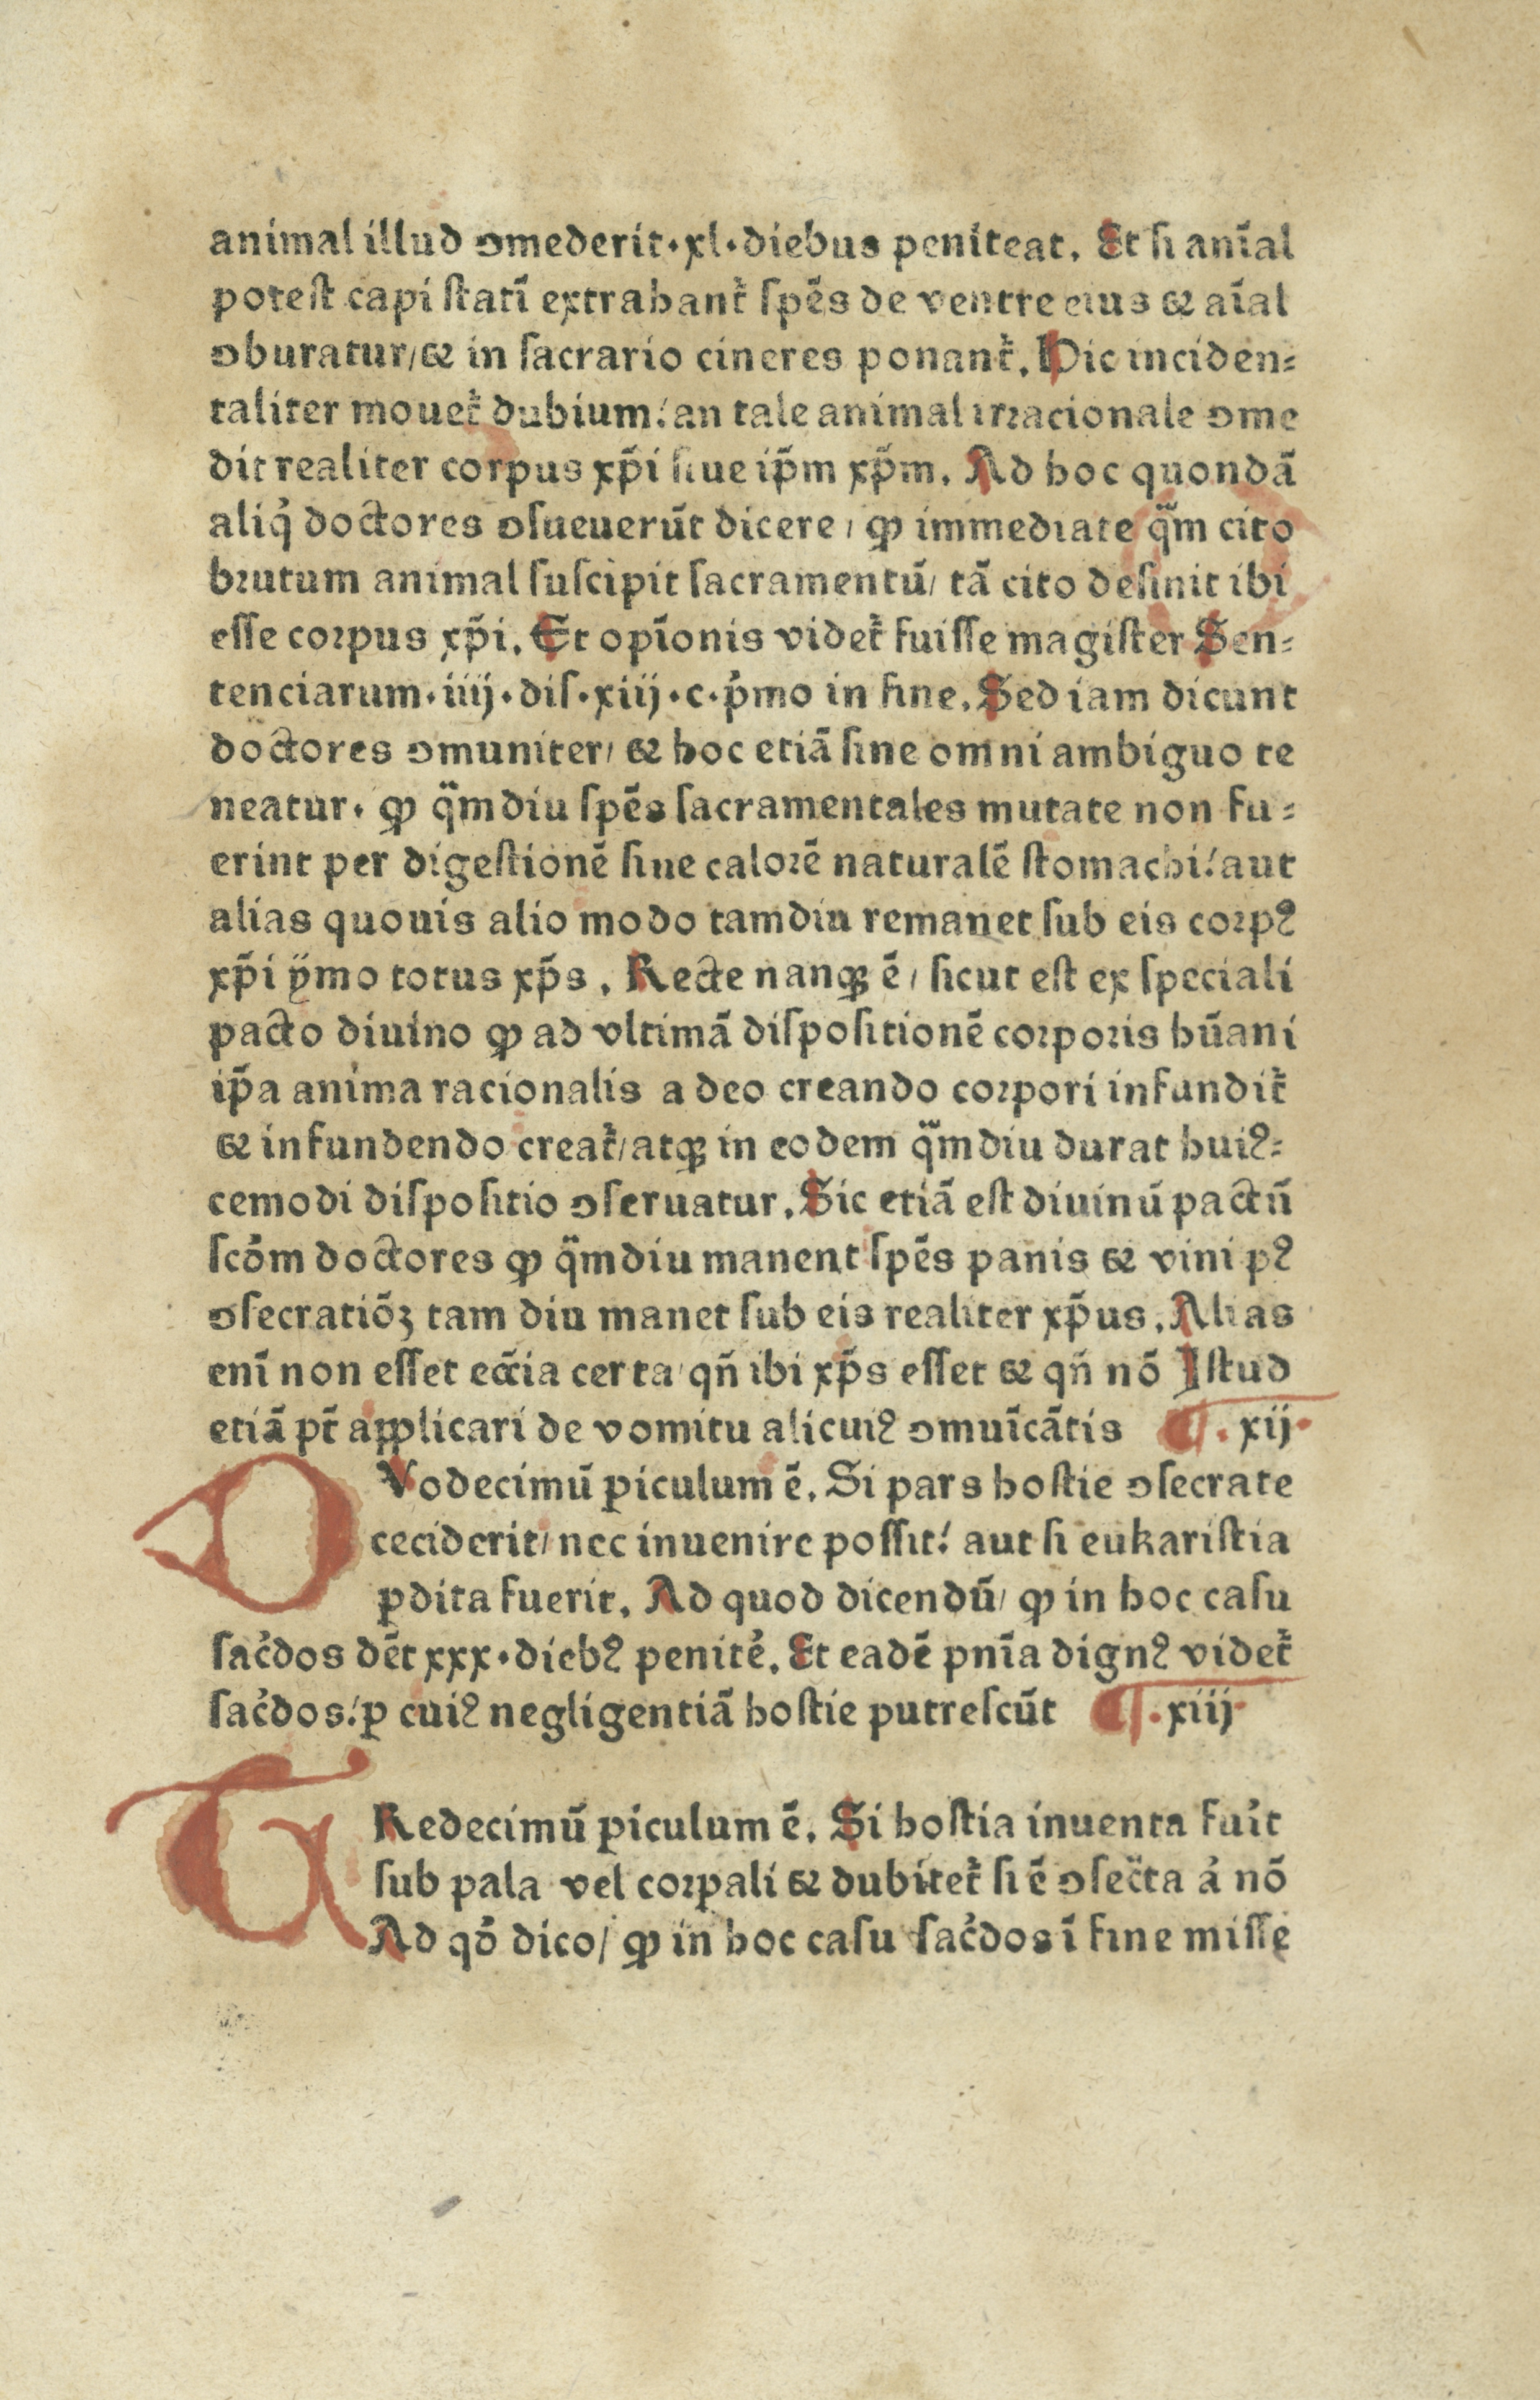 animal illud ꝯmederit·xl·diebus peniteat. Et ſi anīal
poteſt capi ſtatī extrahant᷑ ſpēs de ventre eius ⁊ aīal
ꝯburatur/⁊ in ſacrario cineres ponant᷑. Hic inciden⸗
taliter mouet᷑ dubium: an tale animal irꝛacionale ꝯme
dit realiter corpus xp̄i ſiue ip̄m xp̄m. Ad hoc quondā
aliq̇ doctores ꝯſueuerūt dicere/ ꝙ immediate q̄m cito
bꝛutum animal ſuſcipit ſacramentū/ tā cito deſinit ibi
eſſe coꝛpus xp̄i. Et opīonis videt᷑ fuiſſe magiſter Sen⸗
tenciarum·iiij·diſ·xiij·c·p̓mo in fine. Sed iam dicunt
doctores ꝯmuniter/ ⁊ hoc etiā ſine omni ambiguo te
neatur· ꝙ q̄mdiu ſpēs ſacramentales mutate non fu⸗
erint per digeſtionē ſiue caloꝛē naturalē ſtomachi: aut
alias quouis alio modo tamdiu remanet ſub eis coꝛpꝰ
xp̄i ÿmo totus xp̄s. Recte nanqꝫ ē/ ſicut eſt ex ſpeciali
pacto diuino ꝙ ad vltimā diſpoſitionē coꝛpoꝛis hūani
ip̄a anima racionalis a deo creando coꝛpori infundit᷑
⁊ infundendo creat᷑/atqꝫ in eodem q̄mdiu durat huiꝰ⸗
cemodi diſpoſitio ꝯſeruatur. Sic etiā eſt diuinū pactū
ſcōm doctores ꝙ q̄mdiu manent ſpēs panis ⁊ vini pꝰ
ꝯſecratiōꝫ tam diu manet ſub eis realiter xp̄us. Alias
enī non eſſet ecc̄ia certa/ qn̄ ibi xp̄s eſſet ⁊ qn̄ nō Iſtud
etiā pt̄ applicari de vomitu alicuiꝰ ꝯmuīcātis ¶·xij·
DVodecimū ꝑiculum ē. Si pars hoſtie ꝯſecrate
ceciderit/ nec inuenire poſſit: aut ſi eukariſtia
ꝑdita fuerit. Ad quod dicendū/ ꝙ in hoc caſu
ſac̓dos dēt xxx·diebꝰ penitē. Et eadē pnīa dignꝰ videt᷑
ſac̓dos: ꝑ cuiꝰ negligentiā hoſtie putreſcūt ¶·xiij·
TRedecimū ꝑiculum ē. Si hoſtia inuenta fu̓it
ſub pala vel coꝛpali ⁊ dubitet᷑ ſi ē ꝯſec̄ta a̓ nō
Ad qō dico/ ꝙ in hoc caſu ſac̓dos ī fine miſſe